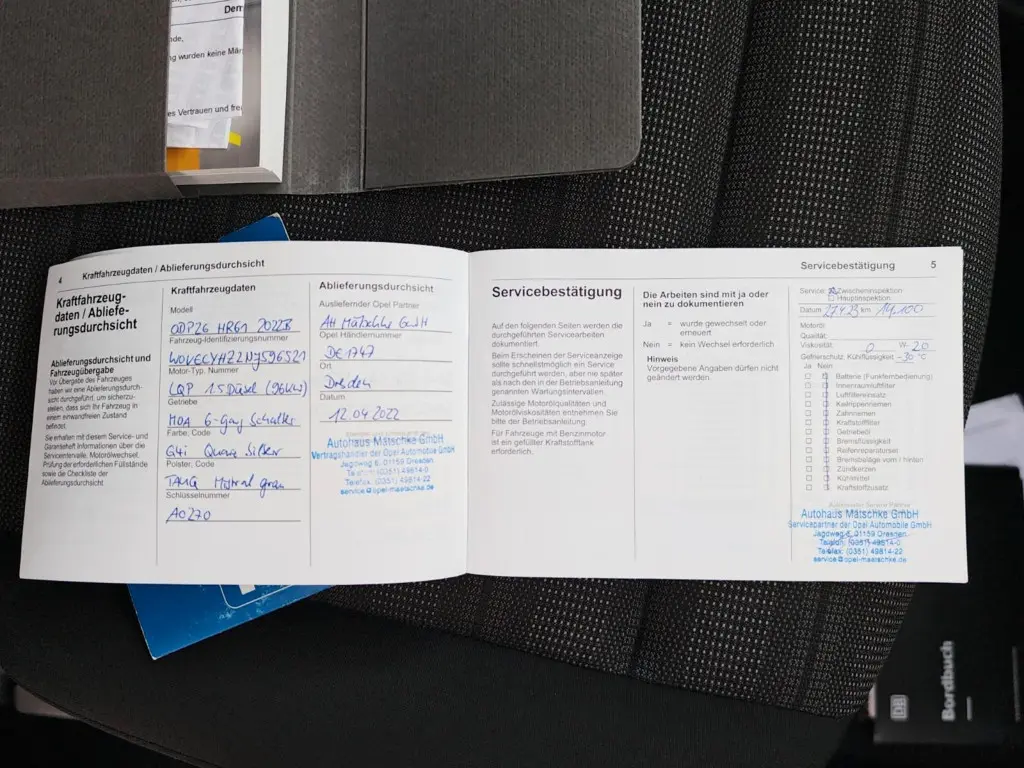 Dem
nde,
ng wurden keine Män
es Vertrauen und frei
4 Kraftfahrzeugdaten / Ablieferungsdurchsicht
Kraftfahrzeug-
daten / Abliefe-
rungsdurchsicht
Ablieferungsdurchsicht und
Fahrzeugübergabe
Vor Übergabe des Fahrzeuges
haben wir eine Ablieferungsdurch-
sicht durchgeführt, um sicherzu-
stellen, dass sich Ihr Fahrzeug in
einem einwandfreien Zustand
befindet.
Sie erhalten mit diesem Service- und
Garantieheft Informationen über die
Serviceintervalle, Motorölwechsel,
Prüfung der erforderlichen Füllstände
sowie die Checkliste der
Ablieferungsdurchsicht.
Kraftfahrzeugdaten
Modell
0DP26 HR61 2022B
Fahrzeug-Identifizierungsnummer
W0VECYHZ2NJ596521
Motor-Typ, Nummer
LQP 1.5 Diesel (96KW)
Getriebe
MDA 6-Gang Schalter
Farbe, Code
G4i Quarz Silber
Polster, Code
TAMG Mistral grau
Schlüsselnummer
A0270
Ablieferungsdurchsicht
Ausliefernder Opel Partner
AH Mätschke GmbH
Opel Händlernummer
DE1747
Ort
Dresden
Datum
12.04.2022
Autohaus Mätschke GmbH
Vertragshändler der Opel Automobile GmbH
Jagdweg 6, 01159 Dresden
Telefon: (0351) 49814-0
Telefax: (0351) 49814-22
service@opel-maetschke.de
Servicebestätigung 5
Servicebestätigung
Auf den folgenden Seiten werden die
durchgeführten Servicearbeiten
dokumentiert.
Beim Erscheinen der Serviceanzeige
sollte schnellstmöglich ein Service
durchgeführt werden, aber nie später
als nach den in der Betriebsanleitung
genannten Wartungsintervallen.
Zulässige Motorölqualitäten und
Motorölviskositäten entnehmen Sie
bitte der Betriebsanleitung.
Für Fahrzeuge mit Benzinmotor
ist ein gefüllter Kraftstofftank
erforderlich.
Die Arbeiten sind mit ja oder
nein zu dokumentieren
Ja = wurde gewechselt oder
erneuert.
Nein = kein Wechsel erforderlich
Hinweis
Vorgegebene Angaben dürfen nicht
geändert werden.
Service: Zwischeninspektion
Hauptinspektion
Datum 27.4.23 km 14.100
Motoröl:
Qualität
Viskosität 0 W- 20
Gefrierschutz, Kühlflüssigkeit -30 °C
Ja Nein
Batterie (Funkfernbedienung)
Innenraumluftfilter
Luftfiltereinsatz
Keilrippenriemen
Zahnriemen
Kraftstofffilter
Getriebeöl
Bremsflüssigkeit
Reifenreparaturset
Bremsbeläge vorn / hinten
Zündkerzen
Kühlmittel
Kraftstoffzusatz
Autohaus Mätschke GmbH
Servicepartner der Opel Automobile GmbH
Jagdweg 6, 01159 Dresden
Telefon: (0351) 49814-0
Telefax: (0351) 49814-22
service@opel-maetschke.de
DB
Bordbuch